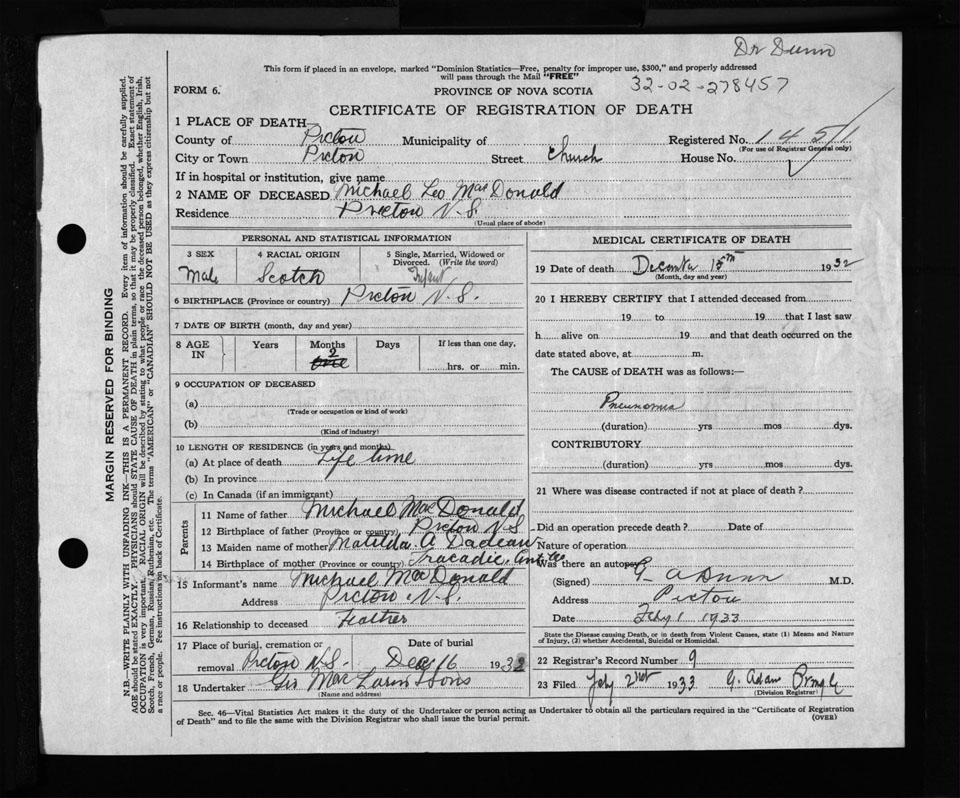 Dr Dunn
This form if placed in an envelope, marked "Dominion Statistics—Free, penalty for improper use, $300," and properly addressed
will pass through the Mail "FREE"
32-02-278457
FORM 6.
PROVINCE OF NOVA SCOTIA
CERTIFICATE OF REGISTRATION OF DEATH
1 PLACE OF DEATH
County of Pictou Municipality of Registered No. 1451
(For use of Registrar General only)
City or Town Pictou Street Church House No.
If in hospital or institution, give name
2 NAME OF DECEASED Michael Leo MacDonald
Residence Pictou N.S.
(Usual place of abode)
PERSONAL AND STATISTICAL INFORMATION
3 SEX 4 RACIAL ORIGIN 5 Single, Married, Widowed or Divorced. (Write the word)
Male Scotch Infant
6 BIRTHPLACE (Province or country) Pictou N.S.
7 DATE OF BIRTH (month, day and year)
8 AGE IN Years Months Days If less than one day,
2
one hrs. or min.
9 OCCUPATION OF DECEASED
(a)
(Trade or occupation or kind of work)
(b)
(Kind of industry)
10 LENGTH OF RESIDENCE (in years and months)
(a) At place of death Life time
(b) In province
(c) In Canada (if an immigrant)
Parents
11 Name of father Michael MacDonald
12 Birthplace of father (Province or country) Pictou N.S.
13 Maiden name of mother Matilda A
14 Birthplace of mother (Province or country) Tracadie, Ant.
15 Informant's name Michael MacDonald
Address Pictou N.S.
16 Relationship to deceased Feather
17 Place of burial, cremation or Date of burial
removal Pictou N.S. Dec 16 1932
18 Undertaker Geo MacLaren & Sons
(Name and address)
MEDICAL CERTIFICATE OF DEATH
19 Date of death December 15th 1932
(Month, day and year)
20 I HEREBY CERTIFY that I attended deceased from
19 to 19 that I last saw
h alive on 19 and that death occurred on the
date stated above, at m.
The CAUSE of DEATH was as follows:—
Pneumonia
(duration) yrs mos dys.
CONTRIBUTORY
(duration) yrs mos dys.
21 Where was disease contracted if not at place of death?
Did an operation precede death? Date of
Nature of operation
Was there an autopsy
(Signed) G A Dunn M.D.
Address Pictou
Date Feby 1 1933
State the Disease causing Death, or in death from Violent Causes, state (1) Means and Nature
of Injury, (2) whether Accidental, Suicidal or Homicidal.
22 Registrar's Record Number 9
23 Filed Feby 2nd 1933 G. Adam
(Division Registrar)
Sec. 46—Vital Statistics Act makes it the duty of the Undertaker or person acting as Undertaker to obtain all the particulars required in the "Certificate of Registration
of Death" and to file the same with the Division Registrar who shall issue the burial permit.
(OVER)
MARGIN RESERVED FOR BINDING
N.B.—WRITE PLAINLY WITH UNFADING INK—THIS IS A PERMANENT RECORD. Every item of information should be carefully supplied.
AGE should be stated EXACTLY. PHYSICIANS should STATE CAUSE OF DEATH in plain terms, so that it may be properly classified. Exact statement of
OCCUPATION is very important. RACIAL ORIGIN will be described by stating to what people or race the deceased person belonged, whether English, Irish,
Scotch, French, German, Russian, Ruthenian, etc. The terms "AMERICAN" or "CANADIAN" SHOULD NOT BE USED as they express citizenship but not
a race or people. See instructions on back of Certificate.